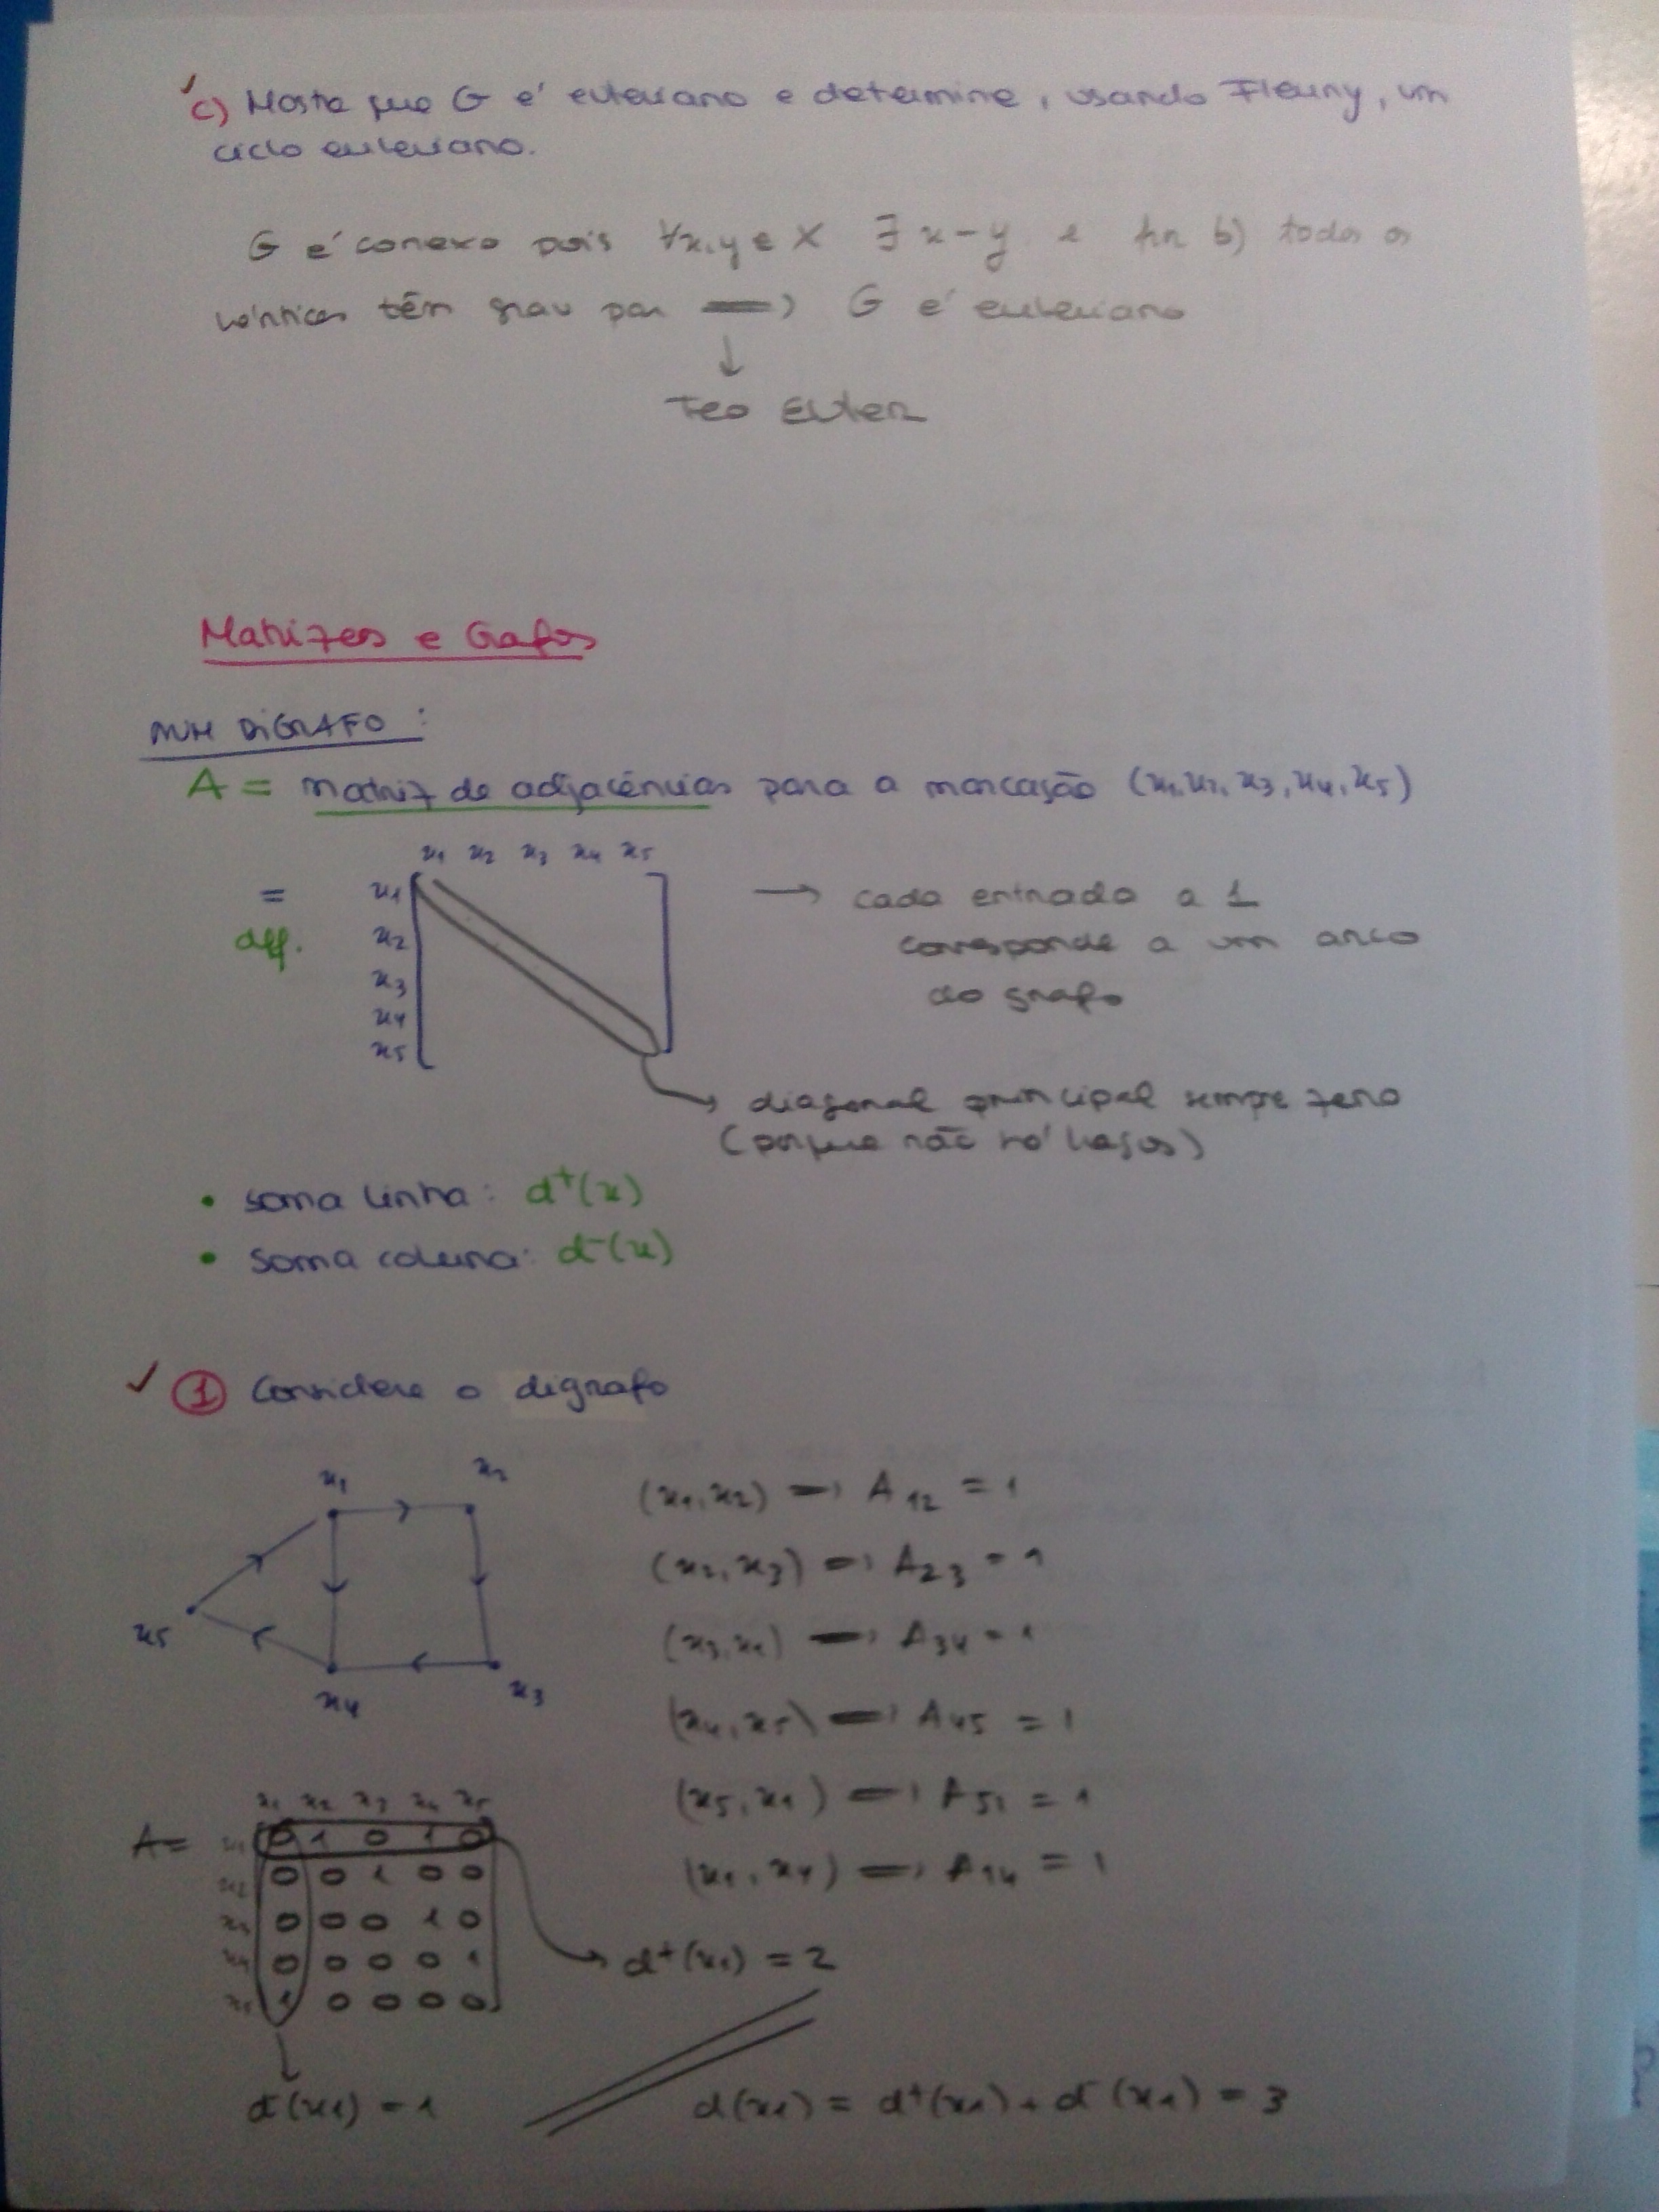 c) Mostra que G é euleriano e determine, usando Fleury, um
ciclo euleriano.
G é conexo pois ∀x,y ∈ X ∃ x-y e por b) todos os
vértices têm grau par ⟹ G é euleriano
↓
Teo Euler
Matrizes e Grafos
NUM DIGRAFO:
A = matriz de adjacências para a marcação (x1, x2, x3, x4, x5)
x1 x2 x3 x4 x5
= x1 → cada entrada a 1
def. x2 corresponde a um arco
x3 do grafo
x4
x5
diagonal principal sempre zero
(porque não há laços)
• soma linha: d⁺(x)
• soma coluna: d⁻(x)
✓ ① Considere o digrafo
x1 x2
x5
x4 x3
(x1, x2) ⟹ A12 = 1
(x2, x3) ⟹ A23 = 1
(x3, x4) ⟹ A34 = 1
(x4, x5) ⟹ A45 = 1
(x5, x1) ⟹ A51 = 1
(x1, x4) ⟹ A14 = 1
x1 x2 x3 x4 x5
A = x1 0 1 0 1 0
x2 0 0 1 0 0
x3 0 0 0 1 0
x4 0 0 0 0 1
x5 1 0 0 0 0
d⁺(x1) = 2
d⁻(x1) = 1
d(x1) = d⁺(x1) + d⁻(x1) = 3